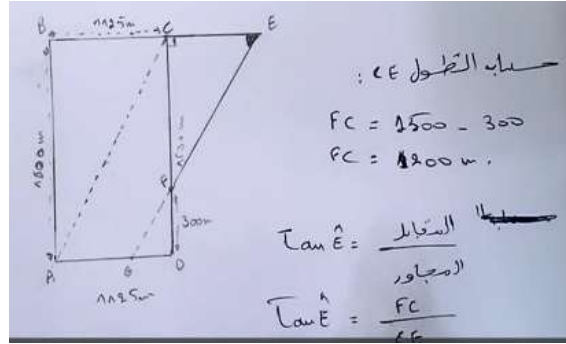 B
1125m
C
E
1500m
F
300m
A
G
D
1125m
حساب الطول CE :
FC = 1500 - 300
FC = 1200 m.
Tan Ê = المقابل
المجاور
Tan Ê = FC